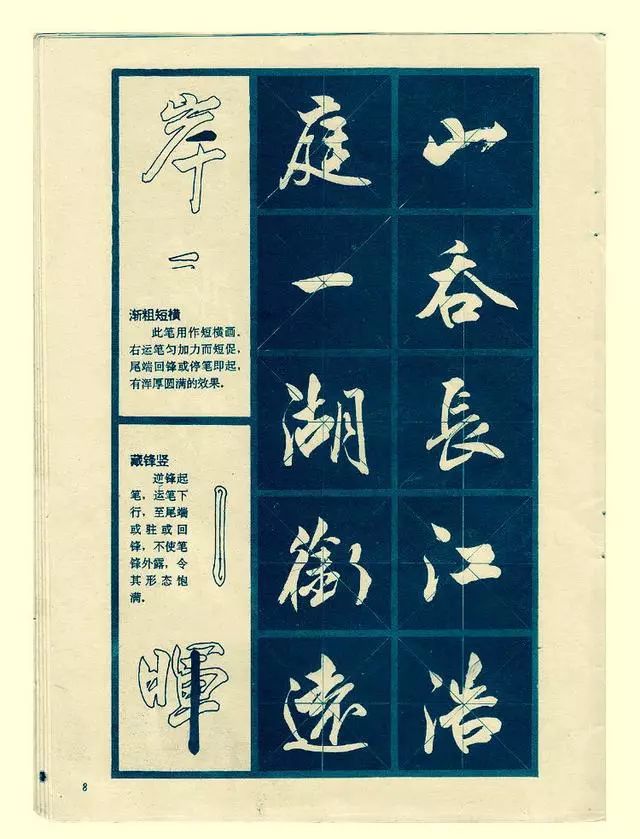 岸
渐粗短横
此笔用作短横画.
右运笔匀加力而短促,
尾端回锋或停笔即起,
有浑厚圆满的效果.
藏锋竖
逆锋起
笔,运笔下
行,至尾端
或驻或回
锋,不使笔
锋外露,令
其形态饱
满.
暉
庭一湖銜遠
山吞長江浩
8